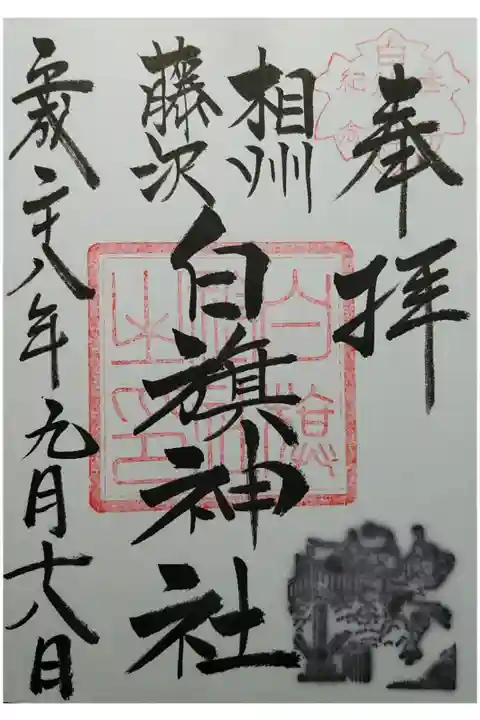 奉拝
相州
藤沢
白旗神社
平成二十八年九月十八日